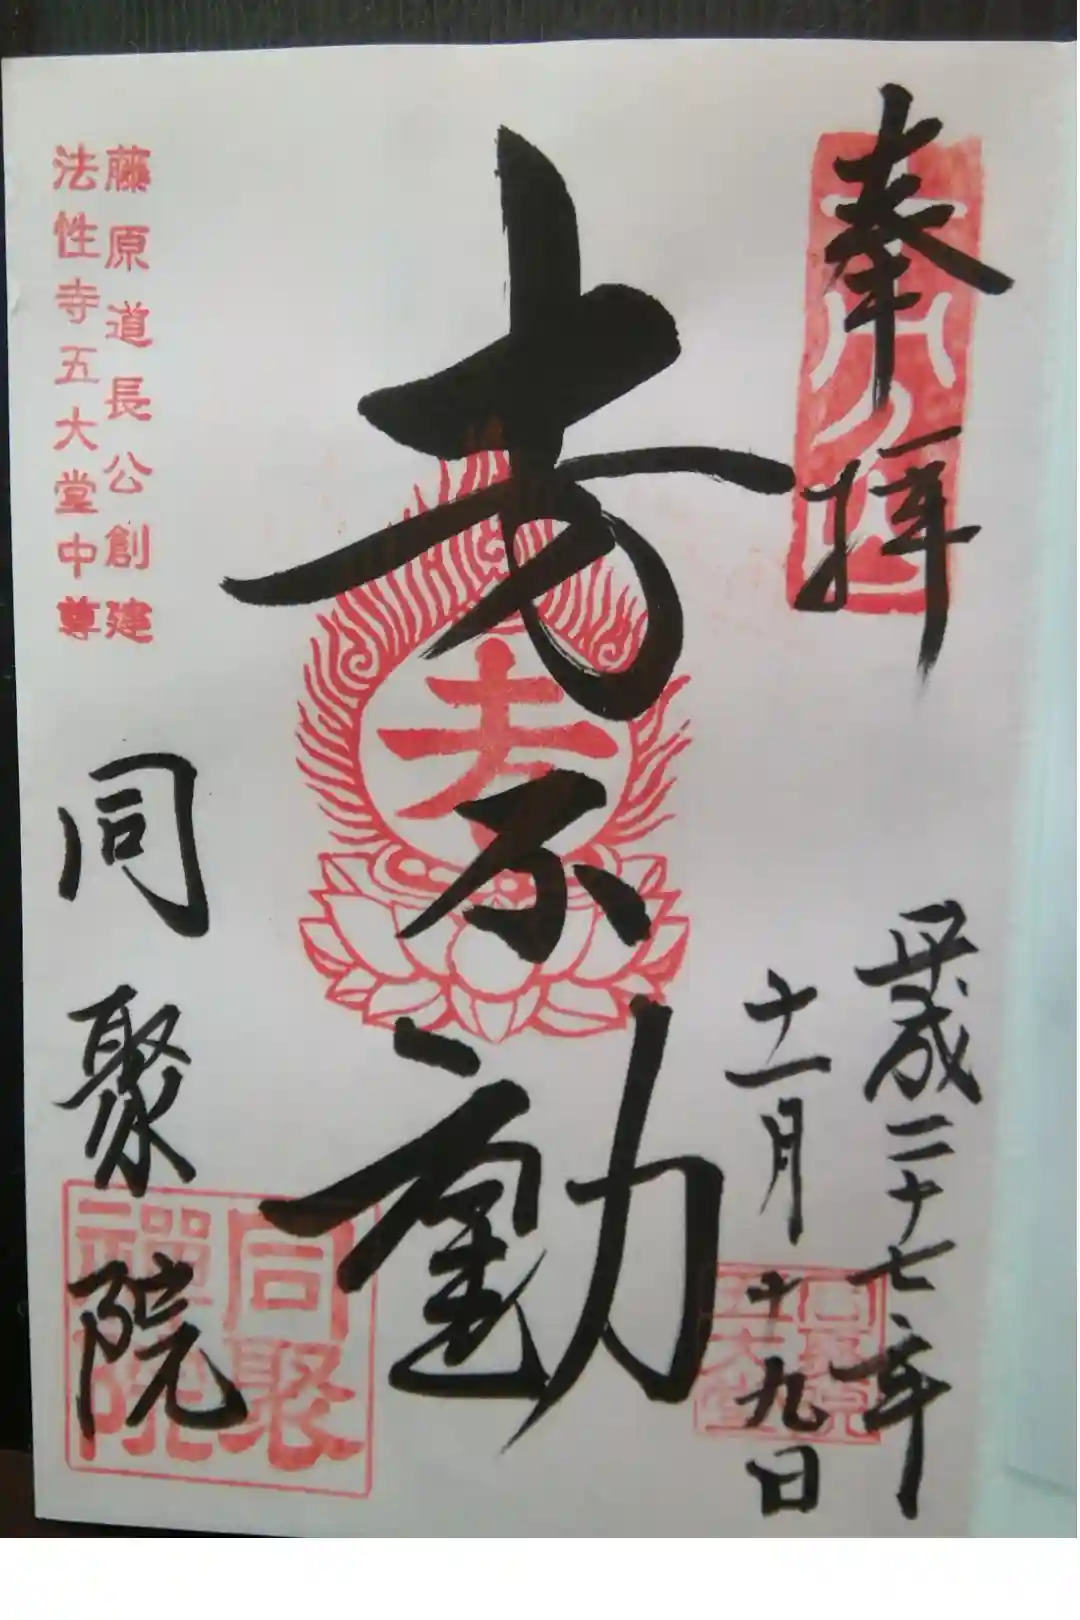 奉拝
平成二十七年
十一月十九日
同聚院
五大堂
不動
藤原道長公創建
法性寺五大堂中尊
同聚院
同聚
禪院